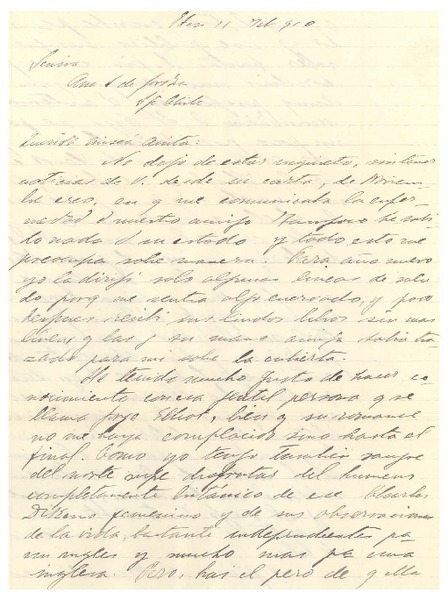 11 Feb 910
Señora
Ana L de
Chile
Querida misiá Anita:
No dejo de estar inquieto, sin tener
noticias de V. desde su carta, de Noviem-
bre creo, en q me comunicaba la enfer-
medad d nuestro amigo. Tampoco he sabi-
do nada d su estado y todo esto me
preocupa sobre manera. Para año nuevo
yo la dirijí solo algunas líneas de salu-
do porq me sentia algo enervado, y poco
despues recibí sus lindos libros sin mas
líneas q las q su mano amiga había tra-
zado para mi sobre la cubierta.
He tenido mucho gusto de hacer co-
nocimiento con esa gentil persona q se
llama Jorge Elliot, bien q su romance
no me haya complacido sino hasta el
final. Como yo tengo tambien sangre
del norte supe disfrutar del humour
completamente británico de ese Charles
Dickens femenino y de sus observaciones
de la vida, bastante independientes pa
un ingles y mucho mas pa una
inglesa. Pero, hai el pero de q ella